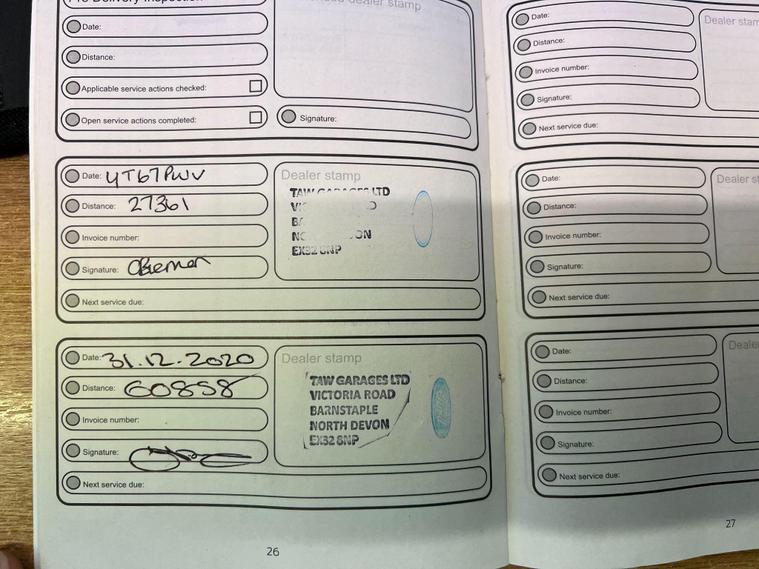 Date:
Distance:
Applicable service actions checked:
Open service actions completed:
Signature:
Date: YT67PWV
Distance: 27361
Invoice number:
Signature:
Next service due:
Dealer stamp
TAW GARAGES LTD
EX32 8NP
Date: 31.12.2020
Distance: 60858
Invoice number:
Signature:
Next service due:
Dealer stamp
TAW GARAGES LTD
VICTORIA ROAD
BARNSTAPLE
NORTH DEVON
EX32 8NP
26
Date:
Distance:
Invoice number:
Signature:
Next service due:
Dealer
Date:
Distance:
Invoice number:
Signature:
Next service due:
Dealer
Date:
Distance:
Invoice number:
Signature:
Next service due:
27